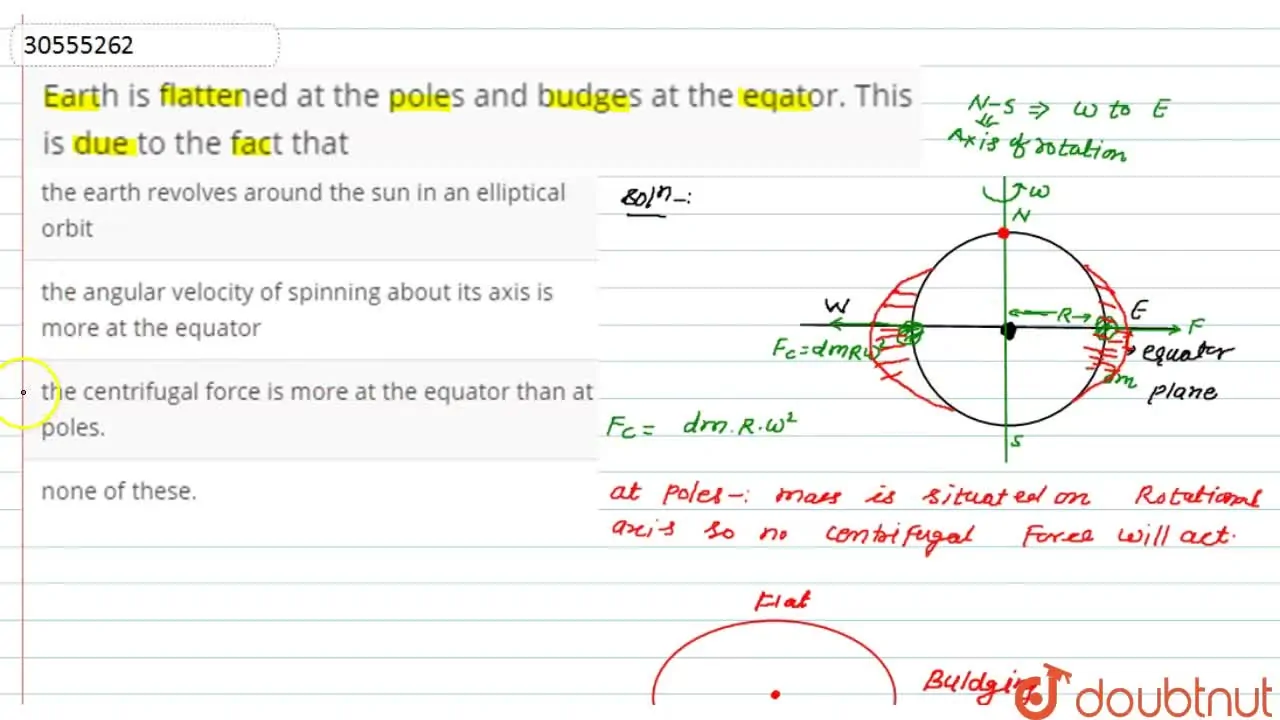 30555262
Earth is flattened at the poles and budges at the eqator. This
is due to the fact that
the earth revolves around the sun in an elliptical
orbit
the angular velocity of spinning about its axis is
more at the equator
the centrifugal force is more at the equator than at
poles.
none of these.
N-S ⇒ W to E
Axis of rotation
Solⁿ-:
ω
N
W
R
E
F
Fc=dmRω²
equator
dm
plane
S
Fc = dm.R.ω²
at poles-: mass is situated on Rotational
axis so no centrifugal Force will act.
Flat
Buldging
doubtnut